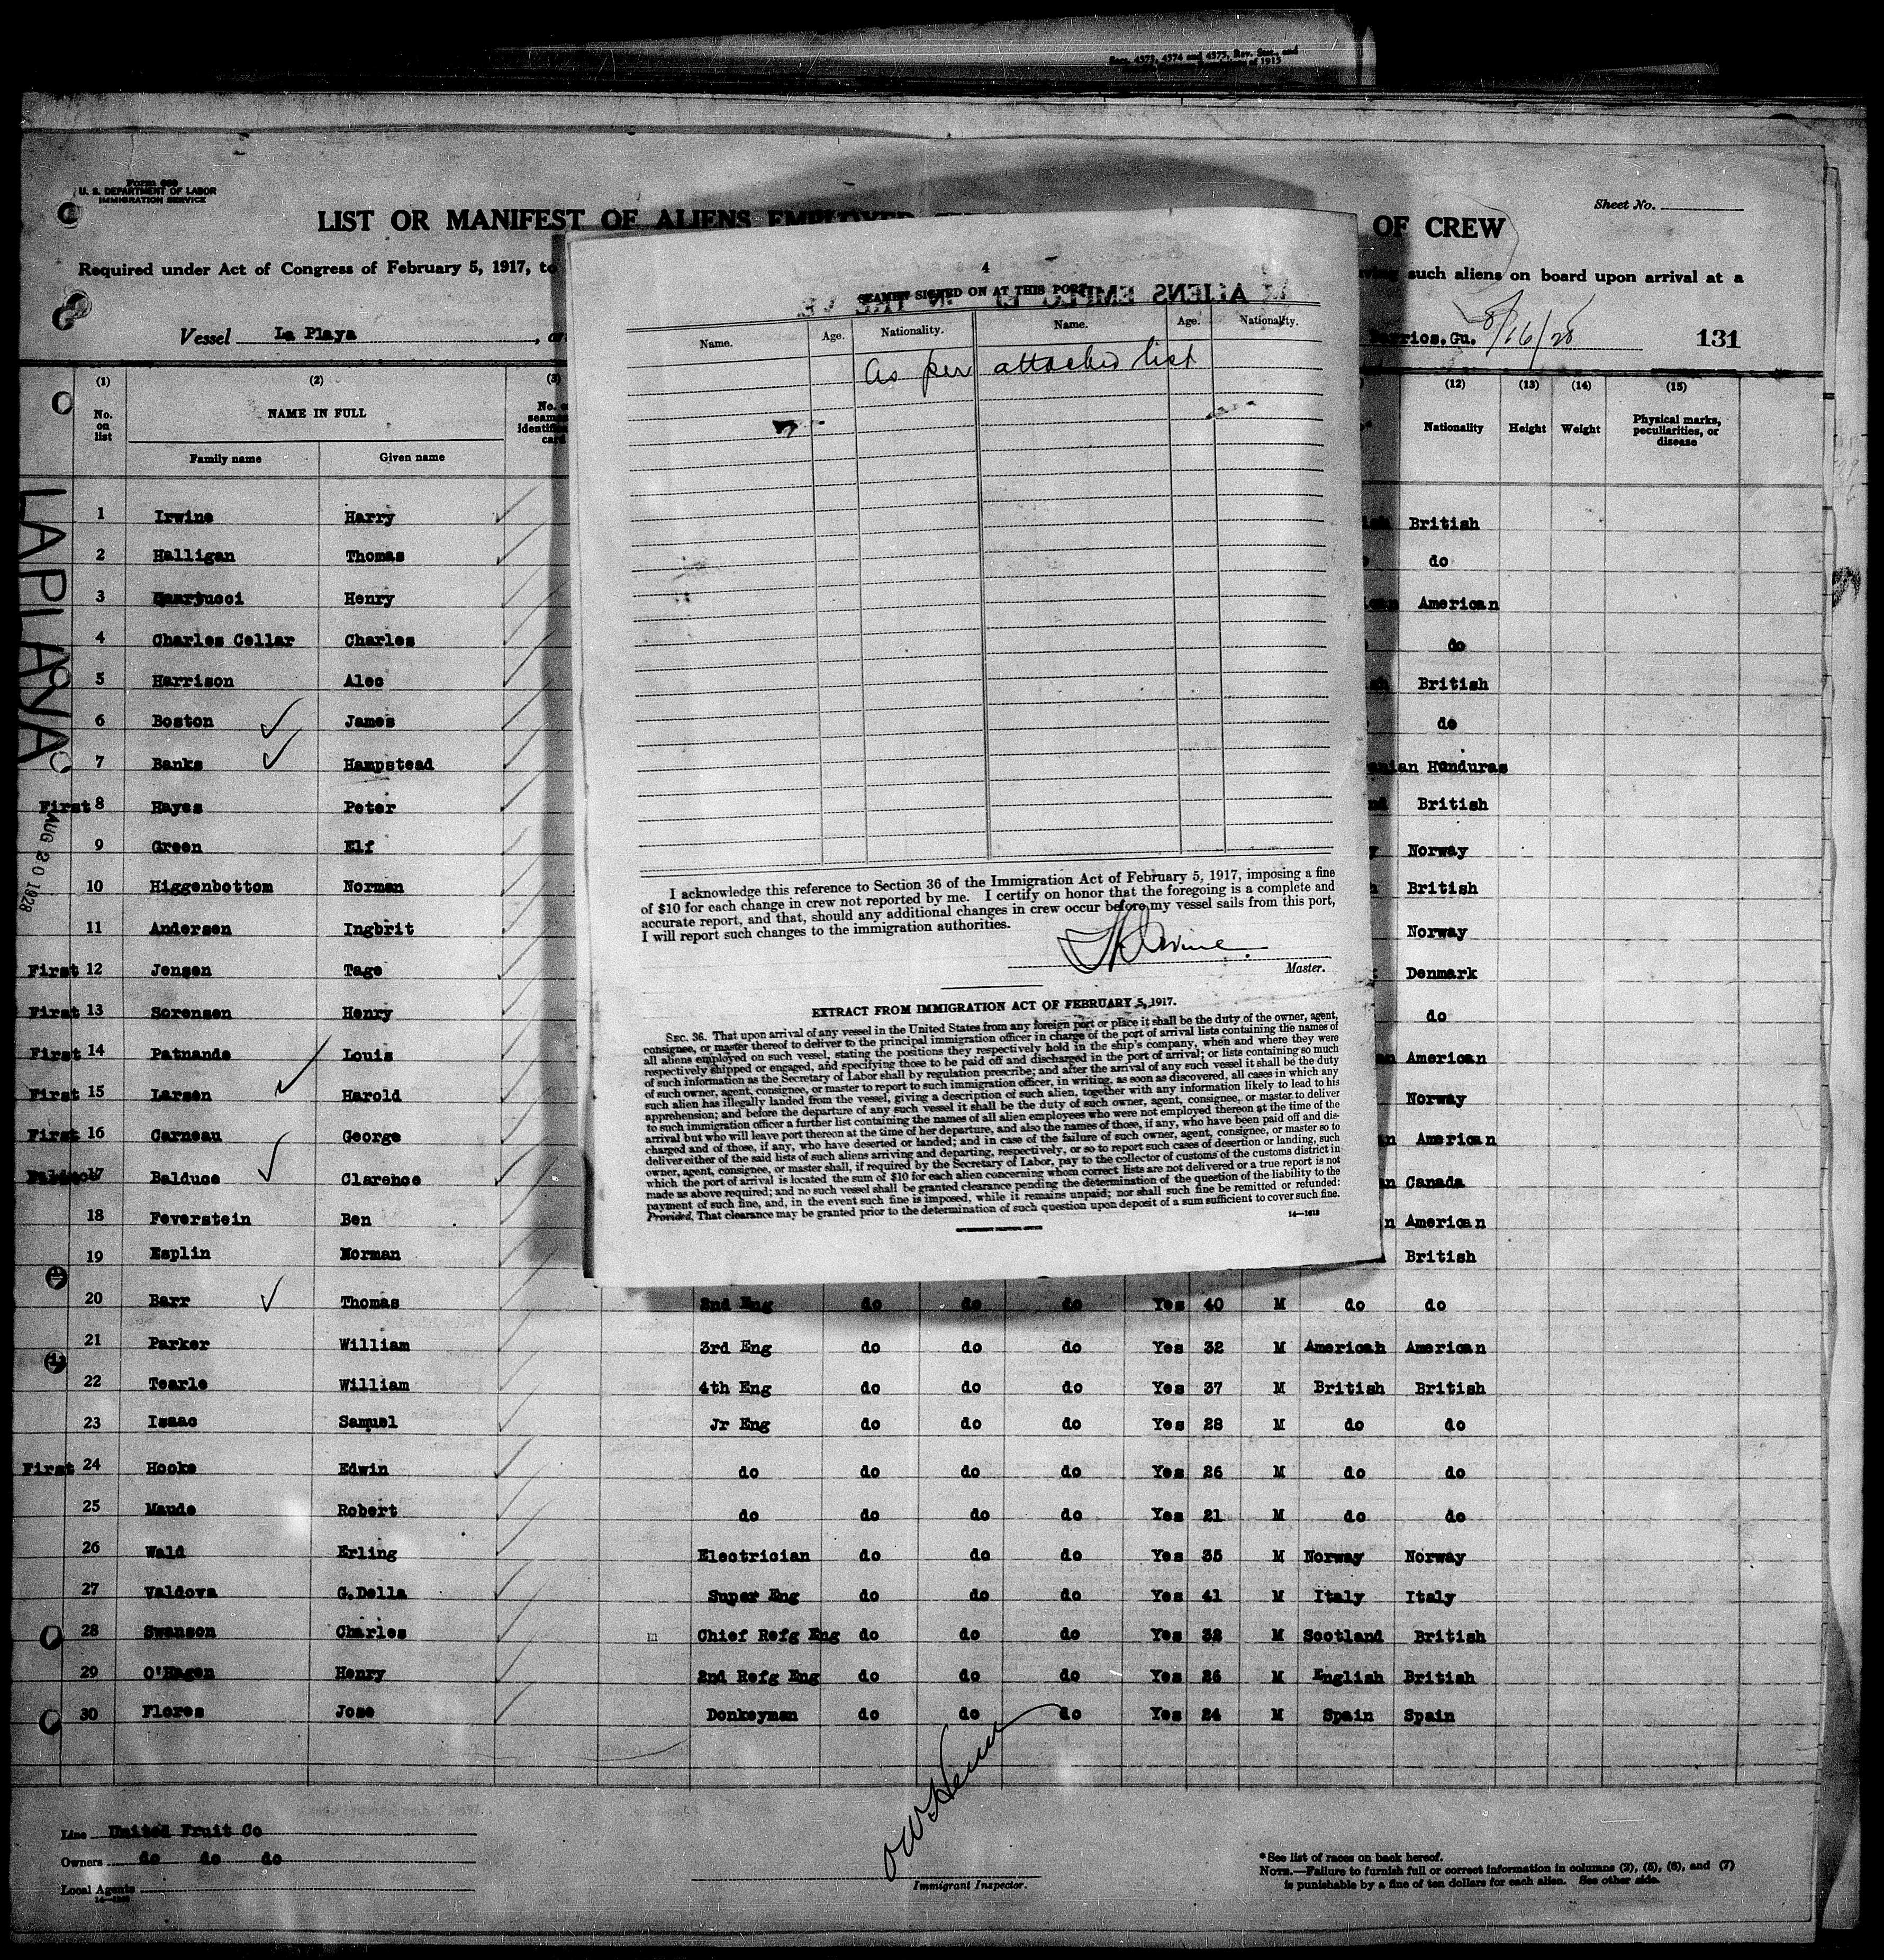 Secs. 4573, 4574 and 4575, Rev. Sec., and
of 1915
Form 689
U. S. DEPARTMENT OF LABOR
IMMIGRATION SERVICE
Sheet No.
LIST OR MANIFEST OF ALIENS EMPLOYED OF CREW
Required under Act of Congress of February 5, 1917, to such aliens on board upon arrival at a
Vessel La Playa Gu. 8/16/28 131
(1) (2) (3) (12) (13) (14) (15)
No. on list
NAME IN FULL
Family name Given name
Nationality Height Weight Physical marks, peculiarities, or disease
LAPLAYA
AUG 20 1928
1 Irwine Harry British
2 Halligan Thomas do
3 Henry American
4 Charles Cellar Charles do
5 Harrison Alec British
6 Boston James do
7 Banks Hampstead Honduras
First 8 Hayes Peter British
9 Green Elf Norway
10 Higgenbottom Norman British
11 Andersen Ingbrit Norway
First 12 Jensen Tage Denmark
First 13 Sorensen Henry do
First 14 Patnande Louis American
First 15 Larsen Harold Norway
First 16 Carneau George American
17 Balduce Clarence Canada
18 Feverstein Ben American
19 Esplin Norman British
20 Barr Thomas 2nd Eng do do do Yes 40 M do do
21 Parker William 3rd Eng do do do Yes 32 M Americah American
22 Tearle William 4th Eng do do do Yes 37 M British British
23 Isaac Samuel Jr Eng do do do Yes 28 M do do
First 24 Hooke Edwin do do do do Yes 26 M do do
25 Maude Robert do do do do Yes 21 M do do
26 Wald Erling Electrician do do do Yes 35 M Norway Norway
27 Valdova G.Della Super Eng do do do Yes 41 M Italy Italy
28 Swanson Charles Chief Refg Eng do do do Yes 32 M Scotland British
29 O'Hagen Henry 2nd Refg Eng do do do Yes 26 M English British
30 Flores Jose Donkeyman do do do Yes 24 M Spain Spain
Line United Fruit Co
Owners do do do
Local Agents
Immigrant Inspector.
*See list of races on back hereof.
NOTE.—Failure to furnish full or correct information in columns (2), (5), (6), and (7)
is punishable by a fine of ten dollars for each alien. See other side.
4
SEAMEN SIGNED ON AT THIS PORT
Name. Age. Nationality. Name. Age. Nationality.
As per attached list
I acknowledge this reference to Section 36 of the Immigration Act of February 5, 1917, imposing a fine
of $10 for each change in crew not reported by me. I certify on honor that the foregoing is a complete and
accurate report, and that, should any additional changes in crew occur before my vessel sails from this port,
I will report such changes to the immigration authorities.
Master.
EXTRACT FROM IMMIGRATION ACT OF FEBRUARY 5, 1917.
SEC. 36. That upon arrival of any vessel in the United States from any foreign port or place it shall be the duty of the owner, agent,
consignee, or master thereof to deliver to the principal immigration officer in charge of the port of arrival lists containing the names of
all aliens employed on such vessel, stating the positions they respectively hold in the ship's company, when and where they were
respectively shipped or engaged, and specifying those to be paid off and discharged in the port of arrival; or lists containing so much
of such information as the Secretary of Labor shall by regulation prescribe; and after the arrival of any such vessel it shall be the duty
of such owner, agent, consignee, or master to report to such immigration officer, in writing, as soon as discovered, all cases in which any
such alien has illegally landed from the vessel, giving a description of such alien, together with any information likely to lead to his
apprehension; and before the departure of any such vessel it shall be the duty of such owner, agent, consignee, or master to deliver
to such immigration officer a further list containing the names of all alien employees who were not employed thereon at the time of the
arrival but who will leave port thereon at the time of her departure, and also the names of those, if any, who have been paid off and dis-
charged and of those, if any, who have deserted or landed; and in case of the failure of such owner, agent, consignee, or master so to
deliver either of the said lists of such aliens arriving and departing, respectively, or so to report such cases of desertion or landing, such
owner, agent, consignee, or master shall, if required by the Secretary of Labor, pay to the collector of customs of the customs district in
which the port of arrival is located the sum of $10 for each alien concerning whom correct lists are not delivered or a true report is not
made as above required; and no such vessel shall be granted clearance pending the determination of the question of the liability to the
payment of such fine, and, in the event such fine is imposed, while it remains unpaid; nor shall such fine be remitted or refunded:
Provided, That clearance may be granted prior to the determination of such question upon deposit of a sum sufficient to cover such fine.
14—1613